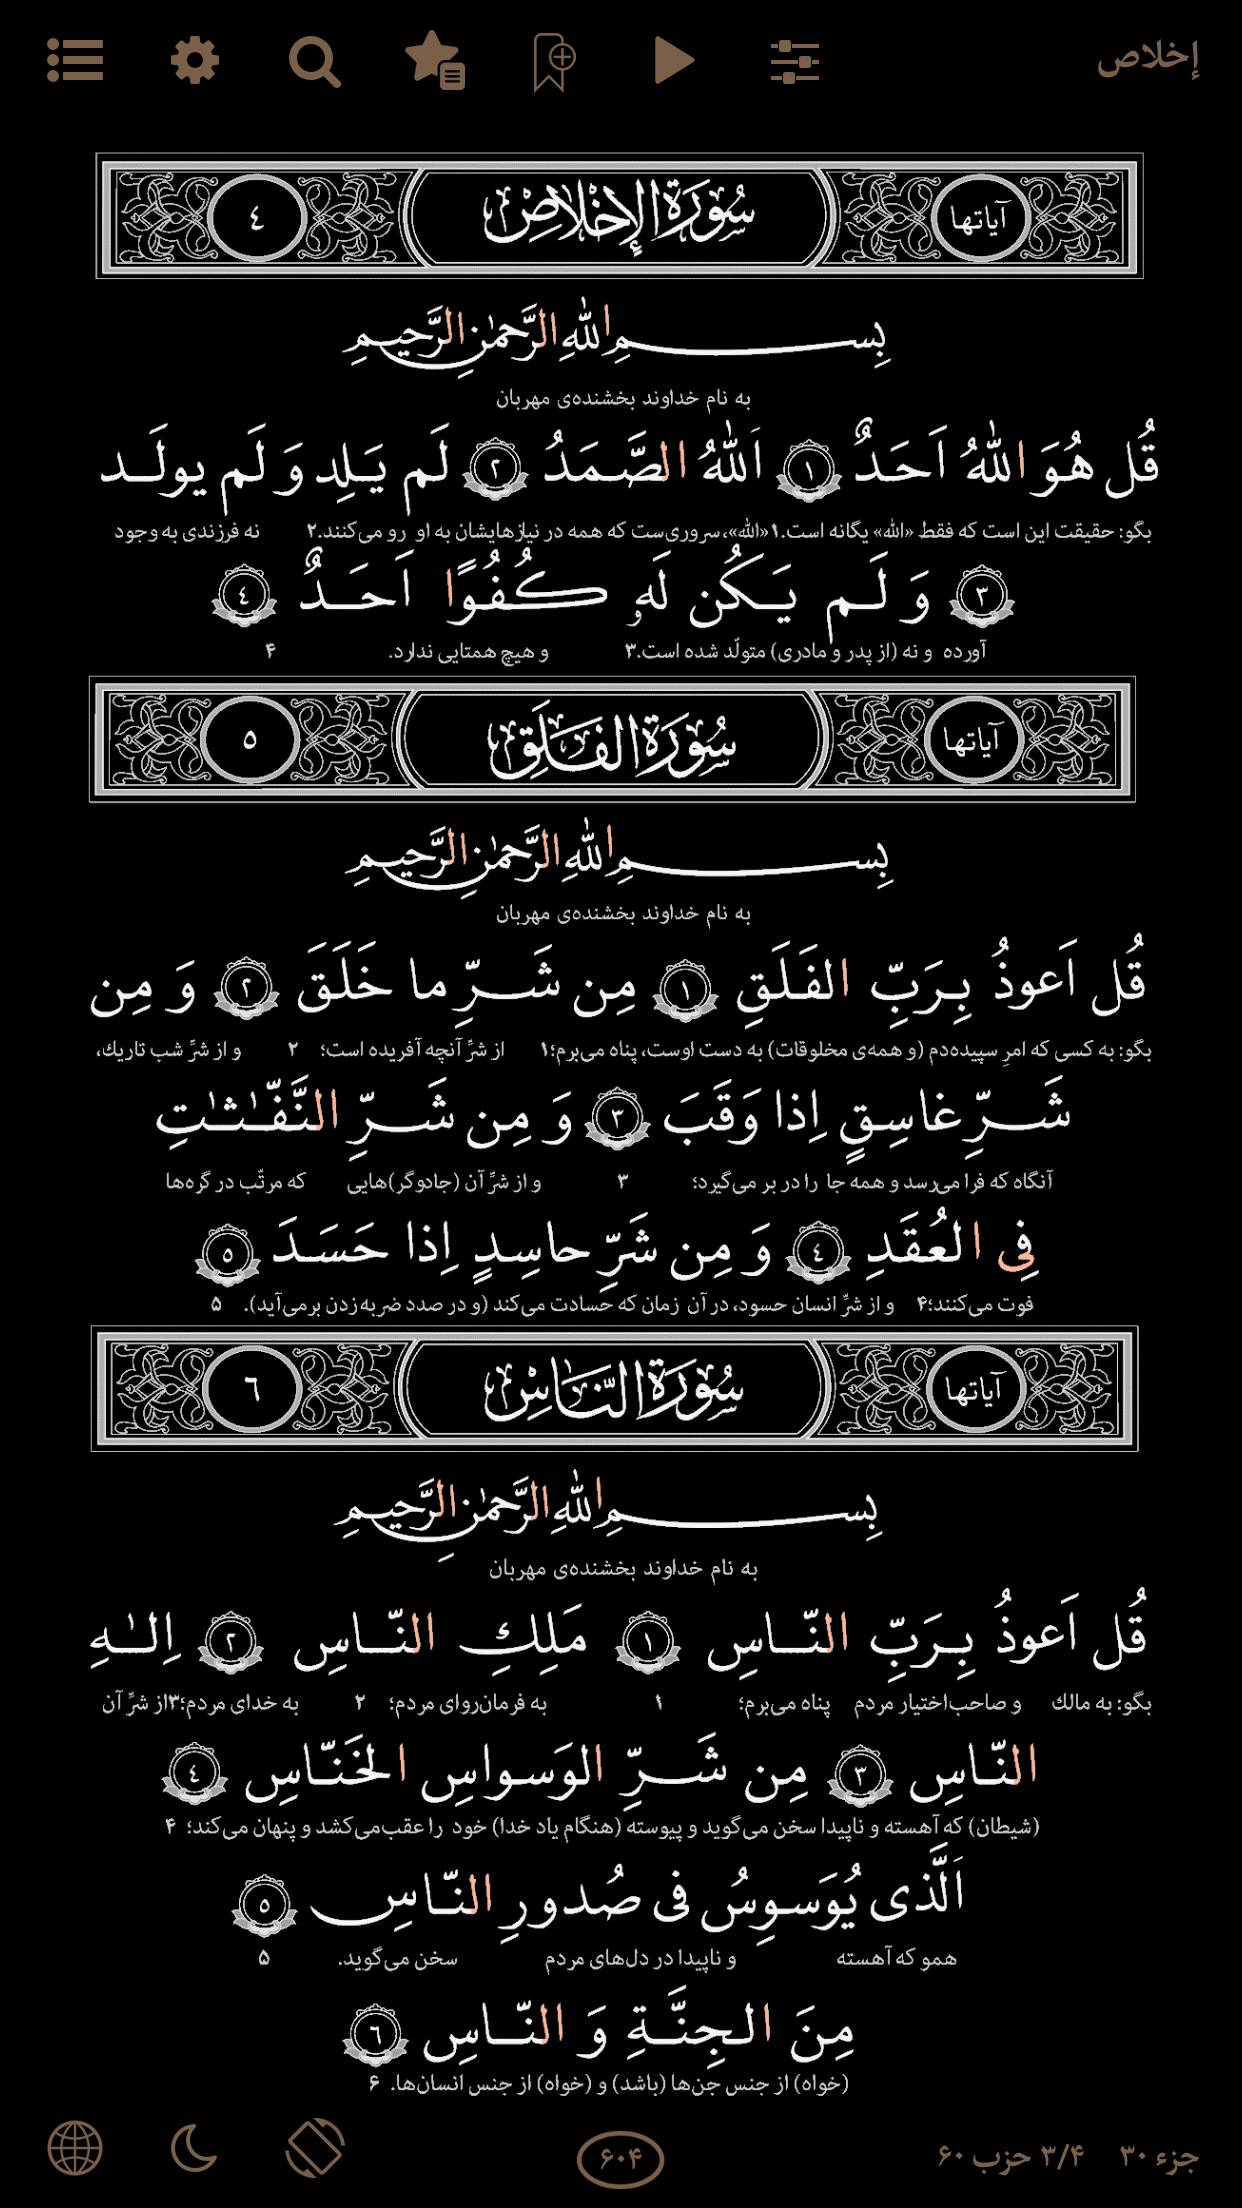 إخلاص
آیاتها سُورَةُ الإِخْلاصِ ٤
بِسمِ اللّٰهِ الرَّحمٰنِ الرَّحیمِ
به نام خداوند بخشنده‌ی مهربان
قُل هُوَ اللّٰهُ اَحَدٌ ١ اَللّٰهُ الصَّمَدُ ٢ لَم یَلِد وَ لَم یولَد
بگو: حقیقت این است که فقط «الله» یگانه است.۱ «الله»، سروری‌ست که همه در نیازهایشان به او رو می‌کنند.۲ نه فرزندی به وجود
٣ وَ لَم یَکُن لَهٗ کُفُوًا اَحَدٌ ٤
آورده و نه (از پدر و مادری) متولّد شده است.۳ و هیچ همتایی ندارد. ۴
آیاتها سُورَةُ الفَلَقِ ٥
بِسمِ اللّٰهِ الرَّحمٰنِ الرَّحیمِ
به نام خداوند بخشنده‌ی مهربان
قُل اَعوذُ بِرَبِّ الفَلَقِ ١ مِن شَرِّ ما خَلَقَ ٢ وَ مِن
بگو: به کسی که امرِ سپیده‌دم (و همه‌ی مخلوقات) به دست اوست، پناه می‌برم؛۱ از شرِّ آنچه آفریده است؛ ۲ و از شرِّ شب تاریك،
شَرِّ غاسِقٍ اِذا وَقَبَ ٣ وَ مِن شَرِّ النَّفّٰثٰتِ
آنگاه که فرا می‌رسد و همه جا را در بر می‌گیرد؛ ۳ و از شرِّ آن (جادوگر)هایی که مرتّب در گره‌ها
فِی العُقَدِ ٤ وَ مِن شَرِّ حاسِدٍ اِذا حَسَدَ ٥
فوت می‌کنند؛۴ و از شرِّ انسان حسود، در آن زمان که حسادت می‌کند (و در صدد ضربه‌زدن برمی‌آید). ۵
آیاتها سُورَةُ النَّاسِ ٦
بِسمِ اللّٰهِ الرَّحمٰنِ الرَّحیمِ
به نام خداوند بخشنده‌ی مهربان
قُل اَعوذُ بِرَبِّ النّاسِ ١ مَلِكِ النّاسِ ٢ اِلٰهِ
بگو: به مالك و صاحب‌اختیار مردم پناه می‌برم؛ ۱ به فرمان‌روای مردم؛ ۲ به خدای مردم؛۳ از شرِّ آن
النّاسِ ٣ مِن شَرِّ الوَسواسِ الخَنّاسِ ٤
(شیطان) که آهسته و ناپیدا سخن می‌گوید و پیوسته (هنگام یاد خدا) خود را عقب‌می‌کشد و پنهان می‌کند؛ ۴
اَلَّذی یُوَسوِسُ فی صُدورِ النّاسِ ٥
همو که آهسته و ناپیدا در دل‌های مردم سخن می‌گوید. ۵
مِنَ الجِنَّةِ وَ النّاسِ ٦
(خواه) از جنس جن‌ها (باشد) و (خواه) از جنس انسان‌ها. ۶
جزء ۳۰ ۳/۴ حزب ۶۰ ۶۰۴